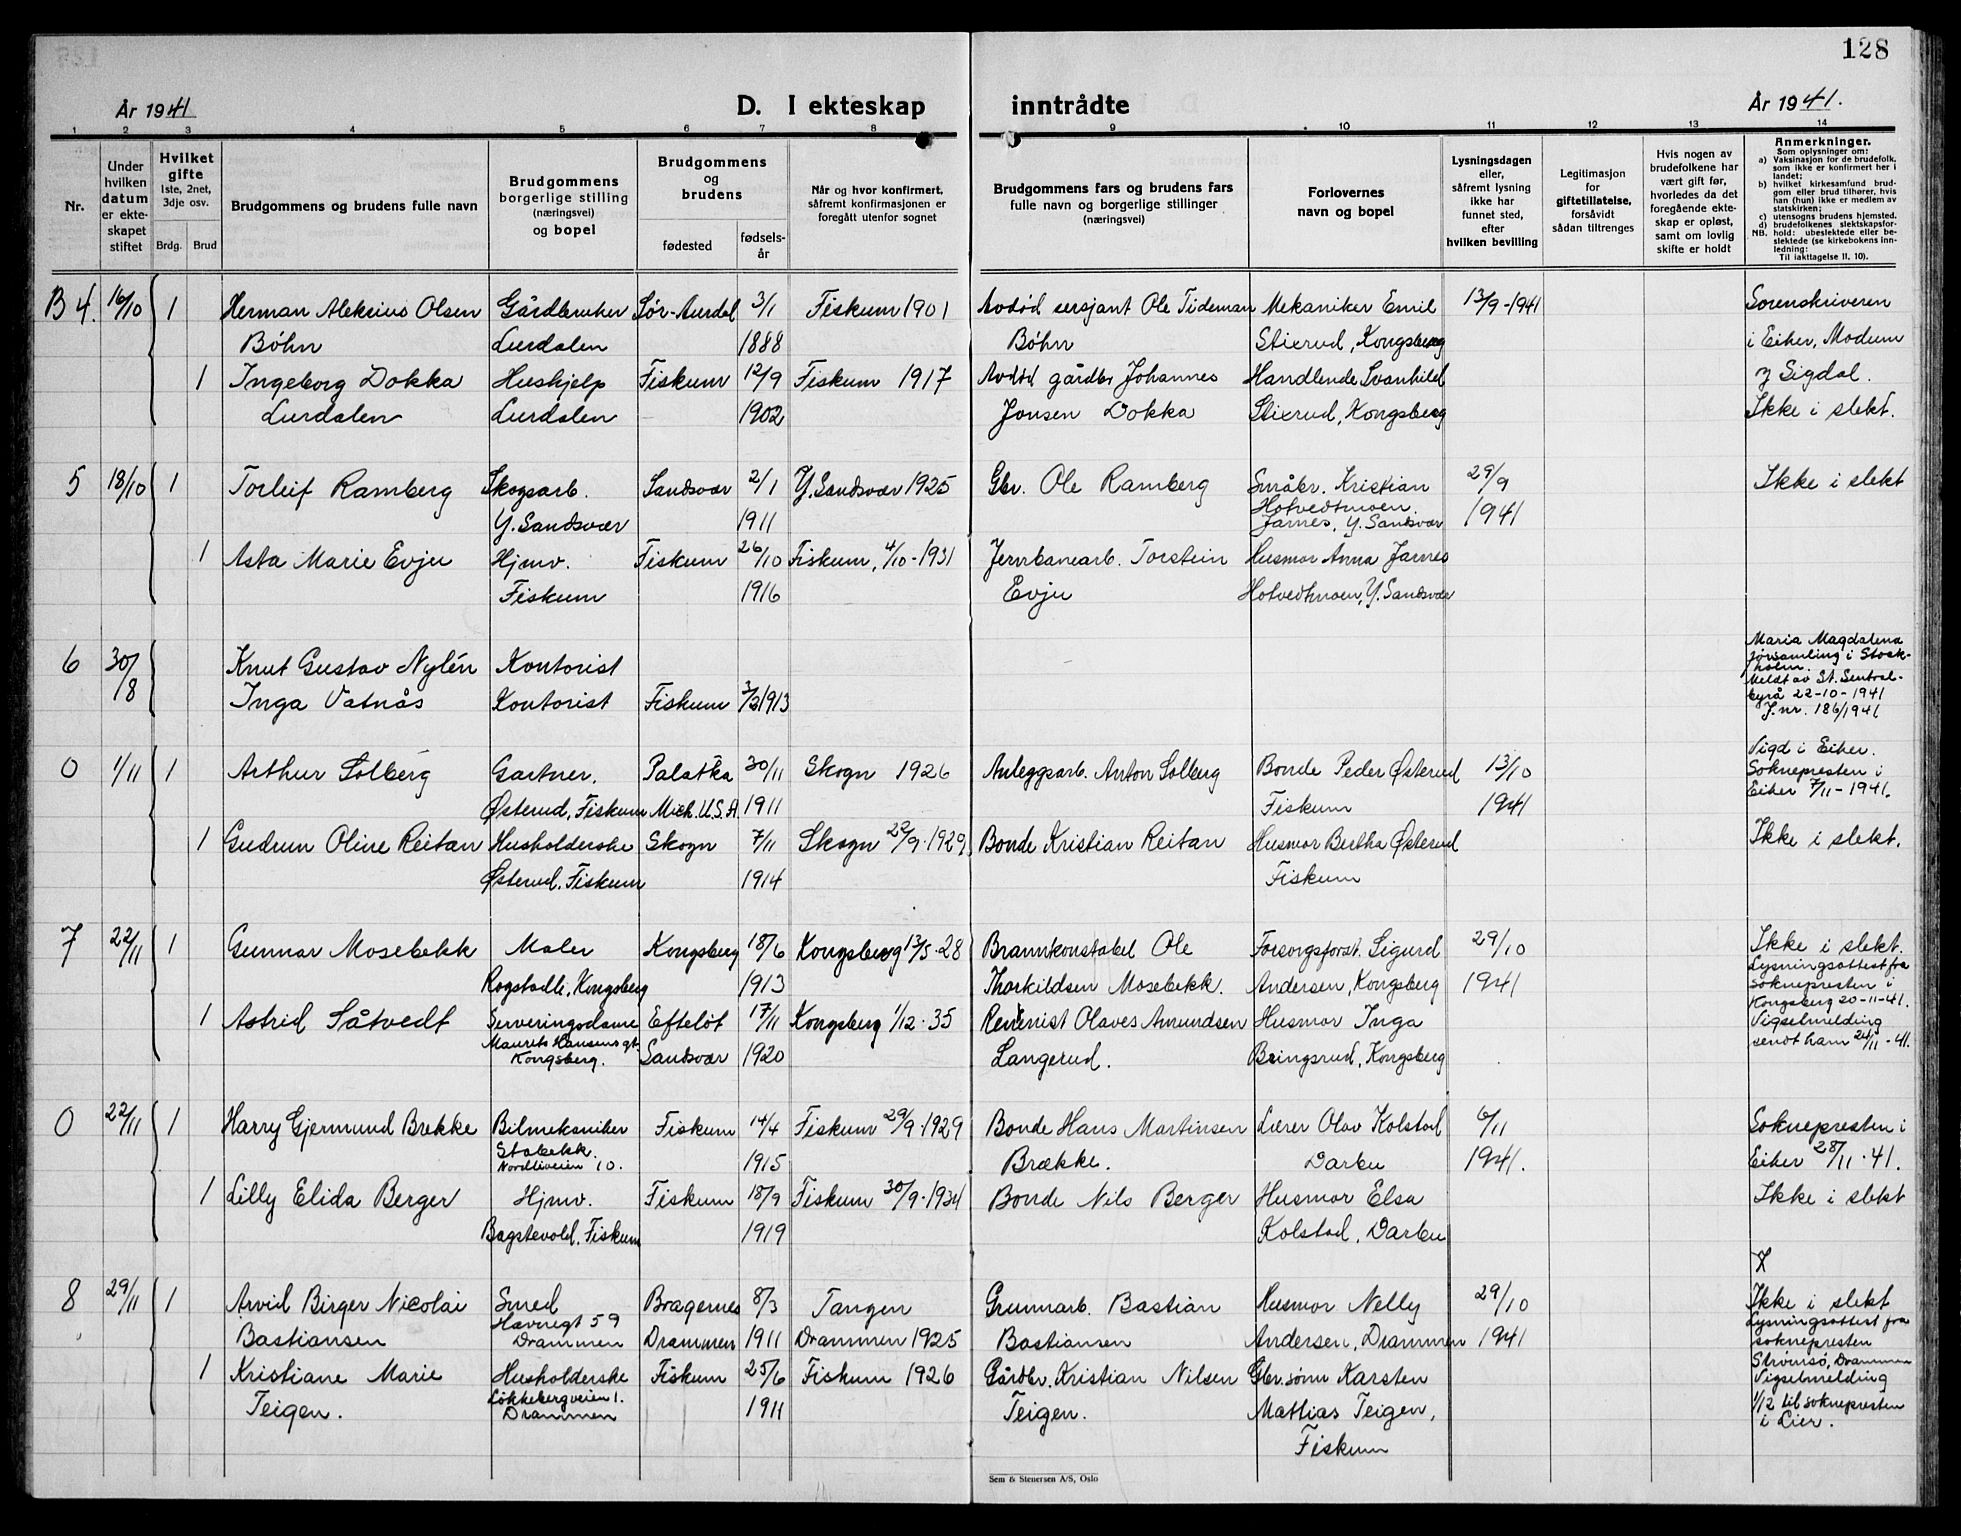 128
År 1941
D. I ekteskap inntrådte
År 1941.
1 2 3 4 5 6 7 8 9 10 11 12 13 14
Nr.
Under hvilken datum er ekteskapet stiftet
Hvilket gifte
1ste, 2net, 3dje osv.
Brdg. Brud
Brudgommens og brudens fulle navn
Brudgommens borgerlige stilling (næringsvei) og bopel
Brudgommens og brudens
fødested
fødsels-år
Når og hvor konfirmert, såfremt konfirmasjonen er foregått utenfor sognet
Brudgommens fars og brudens fars fulle navn og borgerlige stillinger (næringsvei)
Forlovernes navn og bopel
Lysningsdagen eller, såfremt lysning ikke har funnet sted, efter hvilken bevilling
Legitimasjon for giftetillatelse, forsåvidt sådan tiltrenges
Hvis nogen av brudefolkene har vært gift før, hvorledes da det foregående ekteskap er opløst, samt om lovlig skifte er holdt
Anmerkninger.
Som oplysninger om:
a) Vaksinasjon for de brudefolk, som ikke er konfirmert her i landet;
b) hvilket kirkesamfund brudgom eller brud tilhører, hvis han (hun) ikke er medlem av statskirken;
c) utensogns brudens hjemsted.
d) brudefolkenes slektskapsforhold: ubeslektede eller beslektede (se kirkebokens innledning:
NB.
Til iakttagelse II, 10).
B 4. 16/10 1 Herman Aleksius Olsen Gårdbruker Sør-Aurdal 3/1 Fiskum 1901 Avdød sersjant Ole Tideman Mekaniker Emil 13/9-1941 Sorenskriveren
Bøhn Lurdalen 1888 Bøhn Stixrud, Kongsberg i Eiker, Modum
1 Ingeborg Dokka Hushjelp Fiskum 12/9 Fiskum 1917 Avdød gårdbr Johannes Handlende Svanhild Sigdal.
Lurdalen Lurdalen 1902 Jonsen Dokka Stixrud, Kongsberg Ikke i slekt.
5 18/10 1 Torleif Ramberg Skogsarb. Sandsvær 2/1 Y. Sandsvær 1925 Gbr. Ole Ramberg Småbr. Kristian 29/9 Ikke i slekt
Y. Sandsvær 1911 Hotvedtmoen. 1941
Jarnes, Y. Sandsvær
1 Asta Marie Evju Hjmv. Fiskum 26/10 Fiskum, 4/10-1931 Jernbanearb. Torstein Husmor Anna Jarnes
Fiskum 1916 Evju Hotvedtmoen, Y. Sandsvær
6 30/8 Knut Gustav Nylén Kontorist
Inga Vatnås Kontorist Fiskum 3/2 1913
Maria Magdalena
församling i Stock-
holm.
Meldt av St. Sentral-
byrå 22-10-1941
J.nr. 186/1941
0 1/11 1 Arthur Solberg Gartner. Palatka 30/11 Skogn 1926 Anleggsarb. Anton Solberg Bonde Peder Østerud 13/10
Østerud, Fiskum Mich. U.S.A 1911 Fiskum 1941
Vigd i Eiker.
Soknepresten i
Eiker 7/11-1941.
1 Gudrun Oline Reitan Husholderske Skogn 7/11 Skogn 22/9-1929. Bonde Kristian Reitan Husmor Bertha Østerud Ikke i slekt.
Østerud, Fiskum 1914 Fiskum
7 22/11 1 Gunnar Mosebekk Maler Kongsberg 18/6 Kongsberg 13/5-28 Brannkonstabel Ole Forsorgsforst. Sigurd 29/10
Rogstadle, Kongsberg 1913 Thorkildsen Mosebekk. Andersen, Kongsberg 1941
1 Astrid Såtvedt Serveringsdame Efteløt 17/11 Kongsberg 1/12-35 Olaves Amundsen Husmor Inga
Maurits Hansens gt. Kongsberg. Sandsvær 1920 Langerud. Bringsrud, Kongsberg
Ikke i slekt.
Lysningsattest fra
soknepresten i
Kongsberg 20-11-41.
Vigselmelding
sendt ham 24/11-41.
0 22/11 1 Harry Gjermund Brekke Bilmekaniker Fiskum 14/4 Fiskum 29/9-1929 Bonde Hans Martinsen Lærer Olav Kolstad 6/11 Soknepresten i
Stabekk. Nordliveien 10. 1915 Brække. Darbu 1941. Eiker 28/11-41.
1 Lilly Elida Berger Hjmv. Fiskum 18/9 Fiskum 30/9-1934 Bonde Nils Berger Husmor Elsa Ikke i slekt
Bagstevold, Fiskum 1919 Kolstad, Darbu
8 29/11 1 Arvid Birger Nicolai Smed Bragernes 8/3 Tangen Grunnarb. Bastian Husmor Nelly 29/10
Bastiansen Havnegt 59 Drammen Drammen 1911 Drammen 1925 Bastiansen Andersen, Drammen 1941
1 Kristiane Marie Husholderske Fiskum 25/6 Fiskum 1926 Gårdbr. Kristian Nilsen Gbr.sønn Karsten
Teigen. Løkkebergveien 1. Drammen 1911 Teigen. Mattias Teigen,
Fiskum
X
Ikke i slekt
Lysningsattest fra
soknepresten
Strømsø, Drammen
Vigselmelding
1/12 til soknepresten
i Lier.
Sem & Stenersen A/S, Oslo